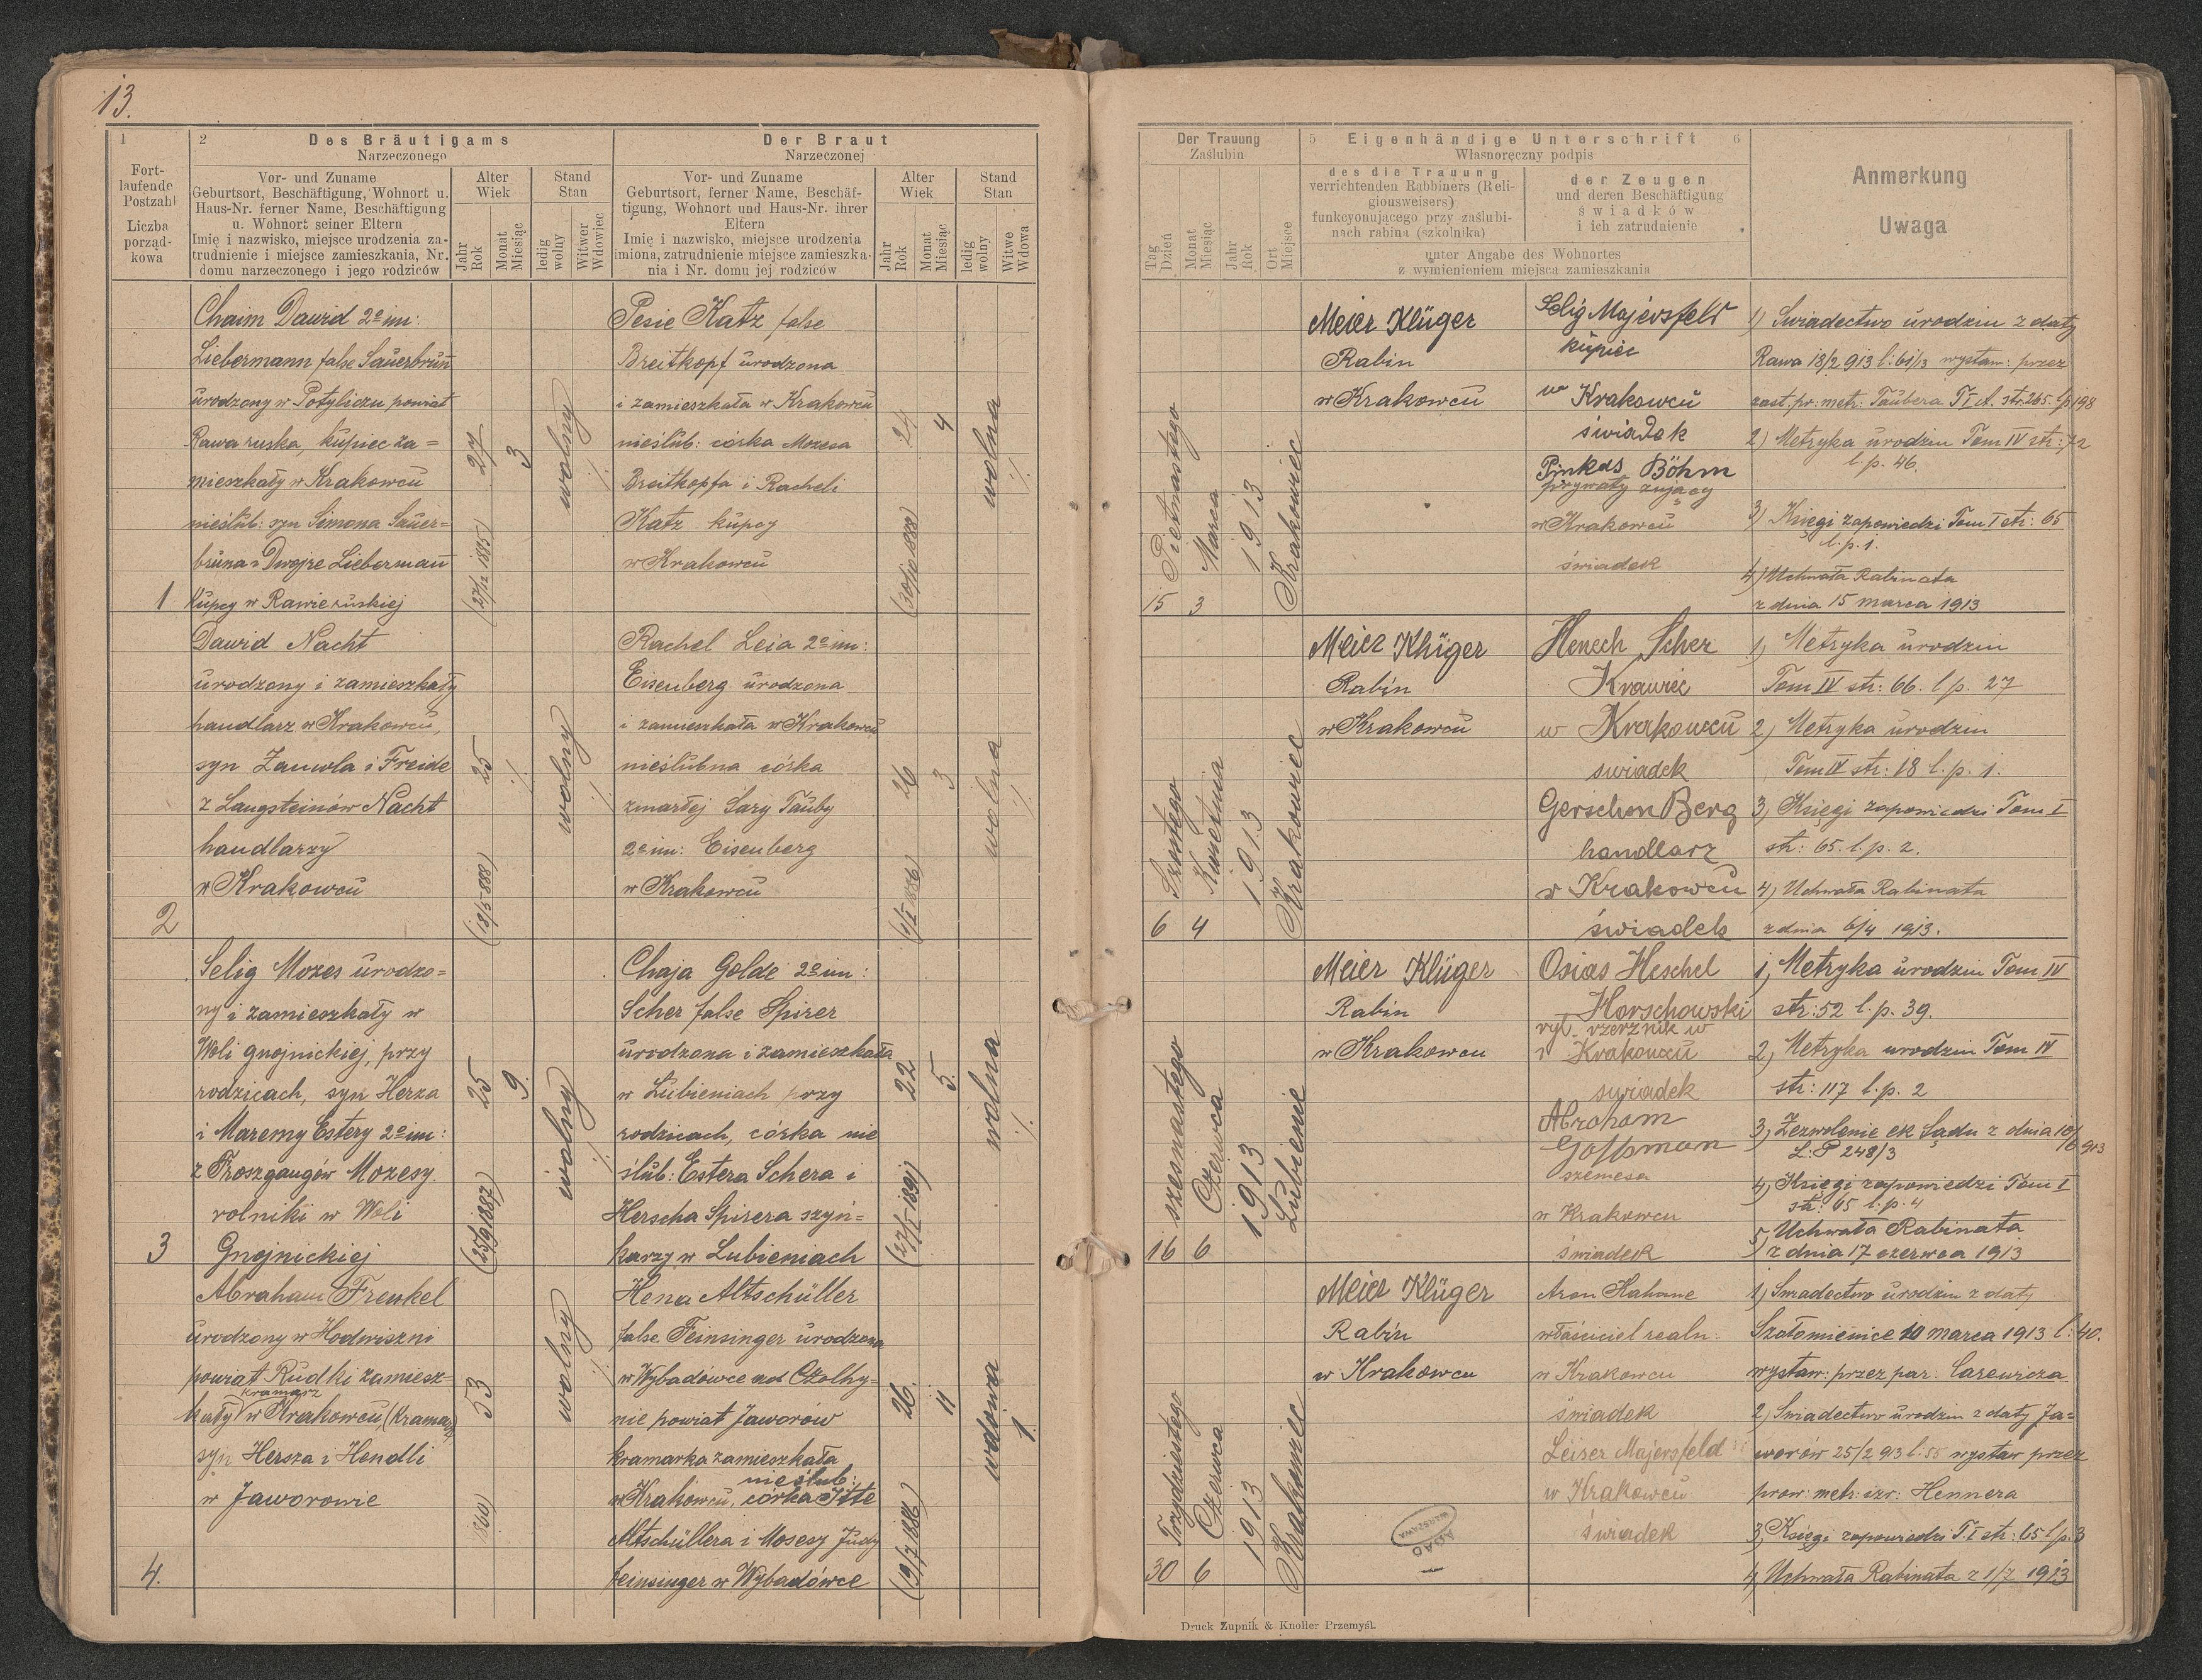 13.
1
Fort-
laufende
Postzahl
Liczba
porząd-
kowa
2 Des Bräutigams
Narzeczonego
Vor- und Zuname
Geburtsort, Beschäftigung, Wohnort u.
Haus-Nr. ferner Name, Beschäftigung
u. Wohnort seiner Eltern
Imię i nazwisko, miejsce urodzenia za-
trudnienie i miejsce zamieszkania, Nr.
domu narzeczonego i jego rodziców
Alter
Wiek
Jahr
Rok
Monat
Miesiąc
Stand
Stan
ledig
wolny
Witwer
Wdowiec
Der Braut
Narzeczonej
Vor- und Zuname
Geburtsort, ferner Name, Beschäf-
tigung, Wohnort und Haus-Nr. ihrer
Eltern
Imię i nazwisko, miejsce urodzenia
imiona, zatrudnienie miejsce zamieszka-
nia i Nr. domu jej rodziców
Alter
Wiek
Jahr
Rok
Monat
Miesiąc
Stand
Stan
ledig
wolny
Witwe
Wdowa
Der Trauung
Zaślubin
Tag
Dzień
Monat
Miesiąc
Jahr
Rok
Ort
Miejsce
5 Eigenhändige Unterschrift 6
Własnoręczny podpis
des die Trauung
verrichtenden Rabbiners (Reli-
gionsweisers)
funkcyonującego przy zaślubi-
nach rabina (szkolnika)
der Zeugen
und deren Beschäftigung
świadków
i ich zatrudnienie
unter Angabe des Wohnortes
z wymienieniem miejsca zamieszkania
Anmerkung
Uwaga
1
Chaim Dawid 2e im:
Liebermann false Sauerbrun
urodzony w Potyliczu powiat
Rawa ruska, kupiec za=
mieszkały w Krakowcu
nieślub: syn Simona Sauer=
bruna i Dwojre Lieberman
kupcy w Rawie ruskiej
27
(27/12 1885)
3
wolny
Pesie Katz false
Breitkopf urodzona
i zamieszkała w Krakowcu
nieślub: córka Mozesa
Breitkopfa i Racheli
Katz kupcy
w Krakowcu
24
(30/10 1888)
4
wolna
15
Piętnastego
3
Marca
1913
Krakowiec
Meier Klüger
Rabin
w Krakowcu
Selig Majersfeld
kupiec
w Krakowcu
świadek
Pinkas Böhm
prywatyzujący
w Krakowcu
świadek
1) Swiadectwo urodzin z daty
Rawa 18/2 913 l: 61/13 wystaw: przez
zast. pr: metr: Taubera T I A. str. 265 lp 198
2) Metryka urodzin Tom IV str: 72
l. p. 46.
3) Księgi zapowiedzi Tom I str: 65
l. p. 1.
4) Uchwała Rabinata
z dnia 15 marca 1913
2
Dawid Nacht
urodzony i zamieszkały
handlarz w Krakowcu,
syn Zauwla i Freide
z Langsteinów Nacht
handlarzy
w Krakowcu
25
(18/5 888)
wolny
Rachel Leia 2e im:
Eisenberg urodzona
i zamieszkała w Krakowcu
nieślubna córka
zmarłej Sary Tauby
2e im: Eisenberg
w Krakowcu
26
3
wolna
6
Szóstego
4
Kwietnia
1913
Krakowiec
Meier Klüger
Rabin
w Krakowcu
Henech Scher
Krawiec
w Krakowcu
swiadek
Gerschon Berg
handlarz
w Krakowcu
świadek
1) Metryka urodzin
Tom IV str: 66. l p. 27
2) Metryka urodzin
Tom IV str: 18 l. p. 1.
3) Księgi zapowiedzi Tom I
str: 65. l. p. 2.
4) Uchwała Rabinata
z dnia 6/4 1913.
3
Selig Mozes urodzo=
ny i zamieszkały w
Woli gnojnickiej, przy
rodzicach, syn Herza
i Maremy Estery 2e im:
z Froszgangów Mozesy.
rolniki w Woli
Gnojnickiej
25
(25/9 1887)
9.
wolny
Chaja Golde 2e im:
Scher false Spirer
urodzona i zamieszkała
w Lubieniach przy
rodzicach, córka nie
ślub: Estera Schera i
Herscha Spirera szyn=
karzy w Lubieniach
22
(27/I 1891)
5.
wolna
16
szesnastego
6
Czerwca
1913
Lubienie
Meier Klüger
Rabin
w Krakowcu
Osias Heschel
Horschowski
w Krakowcu
swiadek
Abraham
w Krakowcu
świadek
1, Metryka urodzin Tom IV
str: 52 l. p. 39.
2, Metryka urodzin Tom IV
str: 117 l. p. 2
3, Zezwolenie ck Sądu z dnia 10/6 913
L: P 248/3
4, Księgi zapowiedzi Tom I
str: 65 l. p. 4
5, Uchwała Rabinata
z dnia 17 czerwca 1913
4.
Abraham Frenkel
urodzony w Hodwiszni
powiat Rudki zamiesz-
kramarz
kały w Krakowcu, (Kramarz
syn Hersza i Hendli
w Jaworowie
53
860)
wolny
Hena Altschüller
false Feinsinger urodzona
w Wybadówce ad Czolhy=
nie powiat Jaworów
kramarka zamieszkała
nieślub:
w Krakowcu, córka Itte
Altschüllera i Mosesy Judy
Feinsinger w Wybadówce
26.
(9/7 1886)
11
wdowa
1.
30
Trzydziestego
6
Czerwca
1913
Krakowiec
Meier Klüger
Rabin
w Krakowcu
Aron Kahane
właściciel realn:
w Krakowcu
świadek
Leiser Majersfeld
w Krakowcu
świadek
1, Swiadectwo urodzin z daty
Szołomienice 10 marca 1913 l: 40.
wystaw: przez par: Carewicza
2, Swiadectwo urodzin z daty Ja=
worów 25/2 913 l: 55 wystaw przez
prow: metr: izr: Hennera
3, Księgi zapowiedzi T. I str: 65 l p. 3
4, Uchwała Rabinata z 1/7 1913
AGAD
WARSZAWA
Druck Zupnik & Knoller Przemyśl.